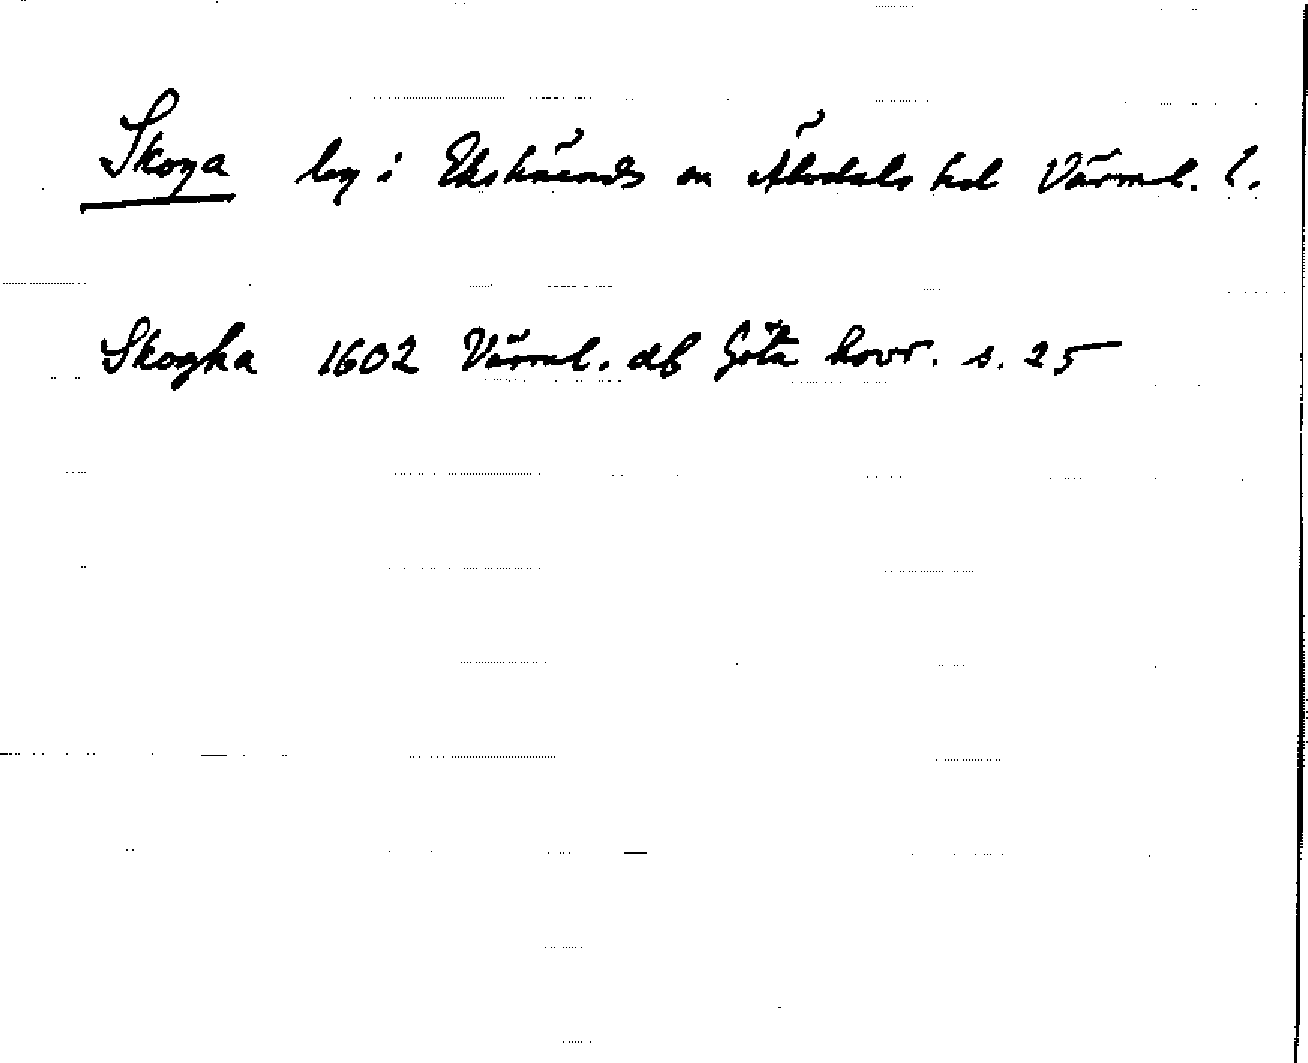 Skoga by i Ekshärads sn Älvdals hd Värml. l.
Skogha 1602 Värml. db Göta hovr. s. 25